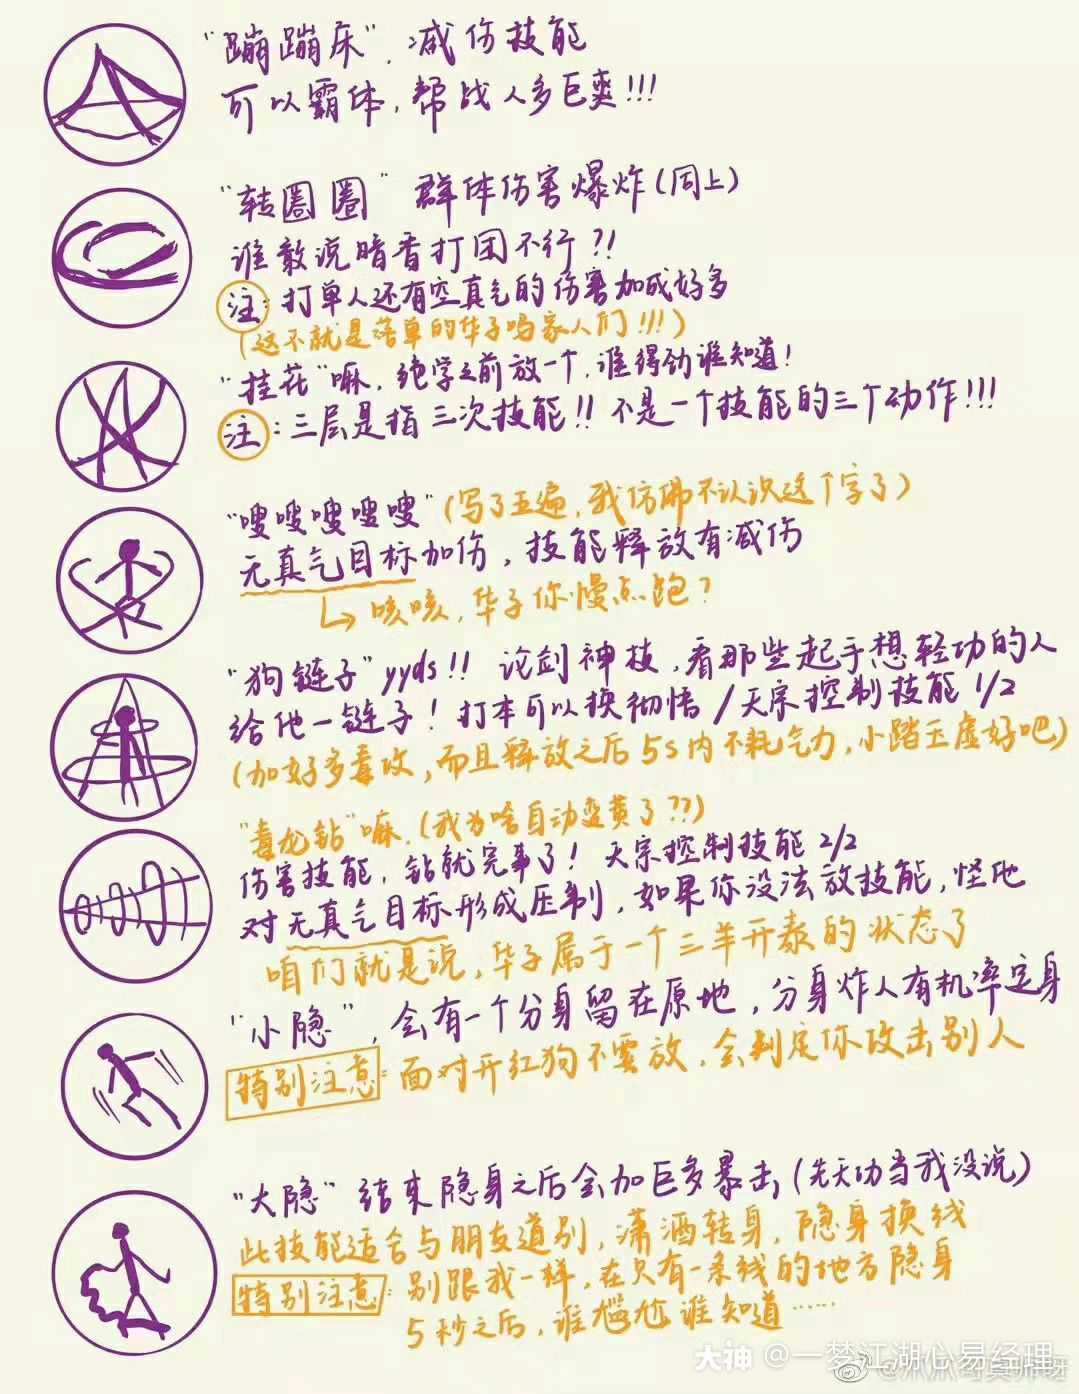 “蹦蹦床”，减伤技能
可以霸体，帮战人多巨爽!!!
“转圈圈” 群体伤害爆炸(同上)
谁敢说暗香打团不行?!
注：打单人还有空真气的伤害加成好多
(这不就是落单的华子吗家人们!!!)
“挂花”嘛，绝学之前放一个，谁得劲谁知道!
注：三层是指三次技能!! 不是一个技能的三个动作!!!
“嗖嗖嗖嗖嗖”(写了五遍，我仿佛不认识这个字了)
无真气目标加伤，技能释放有减伤
↳咳咳，华子你慢点跑?
“狗链子”yyds!! 论剑神技，看那些起手想轻功的人
给他一链子! 打本可以换彻悟/天宗控制技能1/2
(加好多毒攻，而且释放之后5s内不耗气力，小踏玉虚好吧)
“毒龙钻”嘛.(我为啥自动变黄了??)
伤害技能，钻就完事了! 天宗控制技能2/2
对无真气目标形成压制，如果你没法放技能，怪他
咱们就是说，华子属于一个三羊开泰的状态了
“小隐”，会有一个分身留在原地，分身炸人有机率定身
特别注意：面对开红狗不要放，会判定你攻击别人
“大隐” 结束隐身之后会加巨多暴击，(先天功当我没说)
此技能适合与朋友道别，潇洒转身，隐身换线
特别注意：别跟我一样，在只有一条线的地方隐身
5秒之后，谁尴尬谁知道……
大神 @一梦江湖心易经理